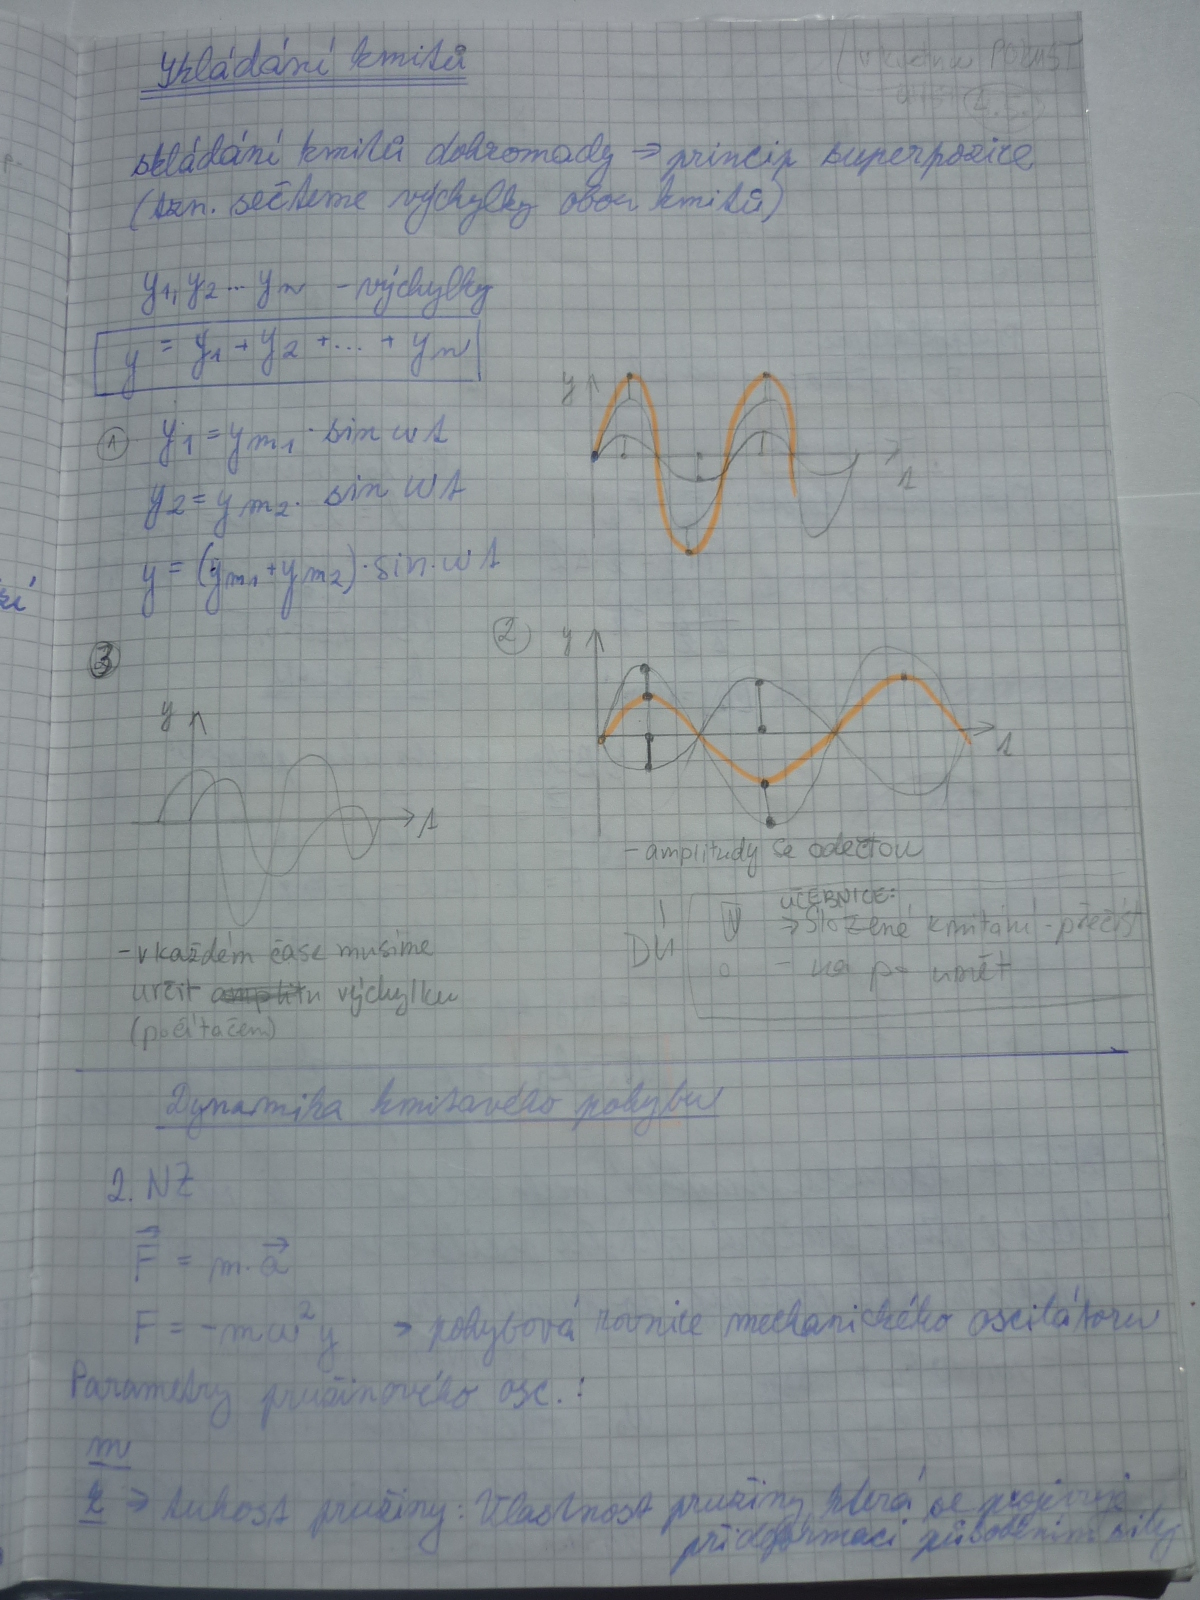 Skládání kmitů
POKUST
2.5.
skládání kmitů dohromady → princip superpozice
(tzn. sečteme výchylky obou kmitů)
y1, y2 ... yn - výchylky
y = y1 + y2 + ... + yn
① y1 = ym1 · sin ωt
y2 = ym2 · sin ωt
y = (ym1 + ym2) · sin · ωt
y
t
②
y
t
- amplitudy se odečtou
③
y
t
- v každém čase musíme
určit výchylku
(počítačem)
DÚ
UČEBNICE:
→ Složené kmitání - přečíst
- umět
Dynamika kmitavého pohybu
2. NZ
F = m · a
F = -mω²y → pohybová rovnice mechanického oscilátoru
Parametry pružinového osc. :
m
k → tuhost pružiny : Vlastnost pružiny která se projevuje
při deformaci působením síly